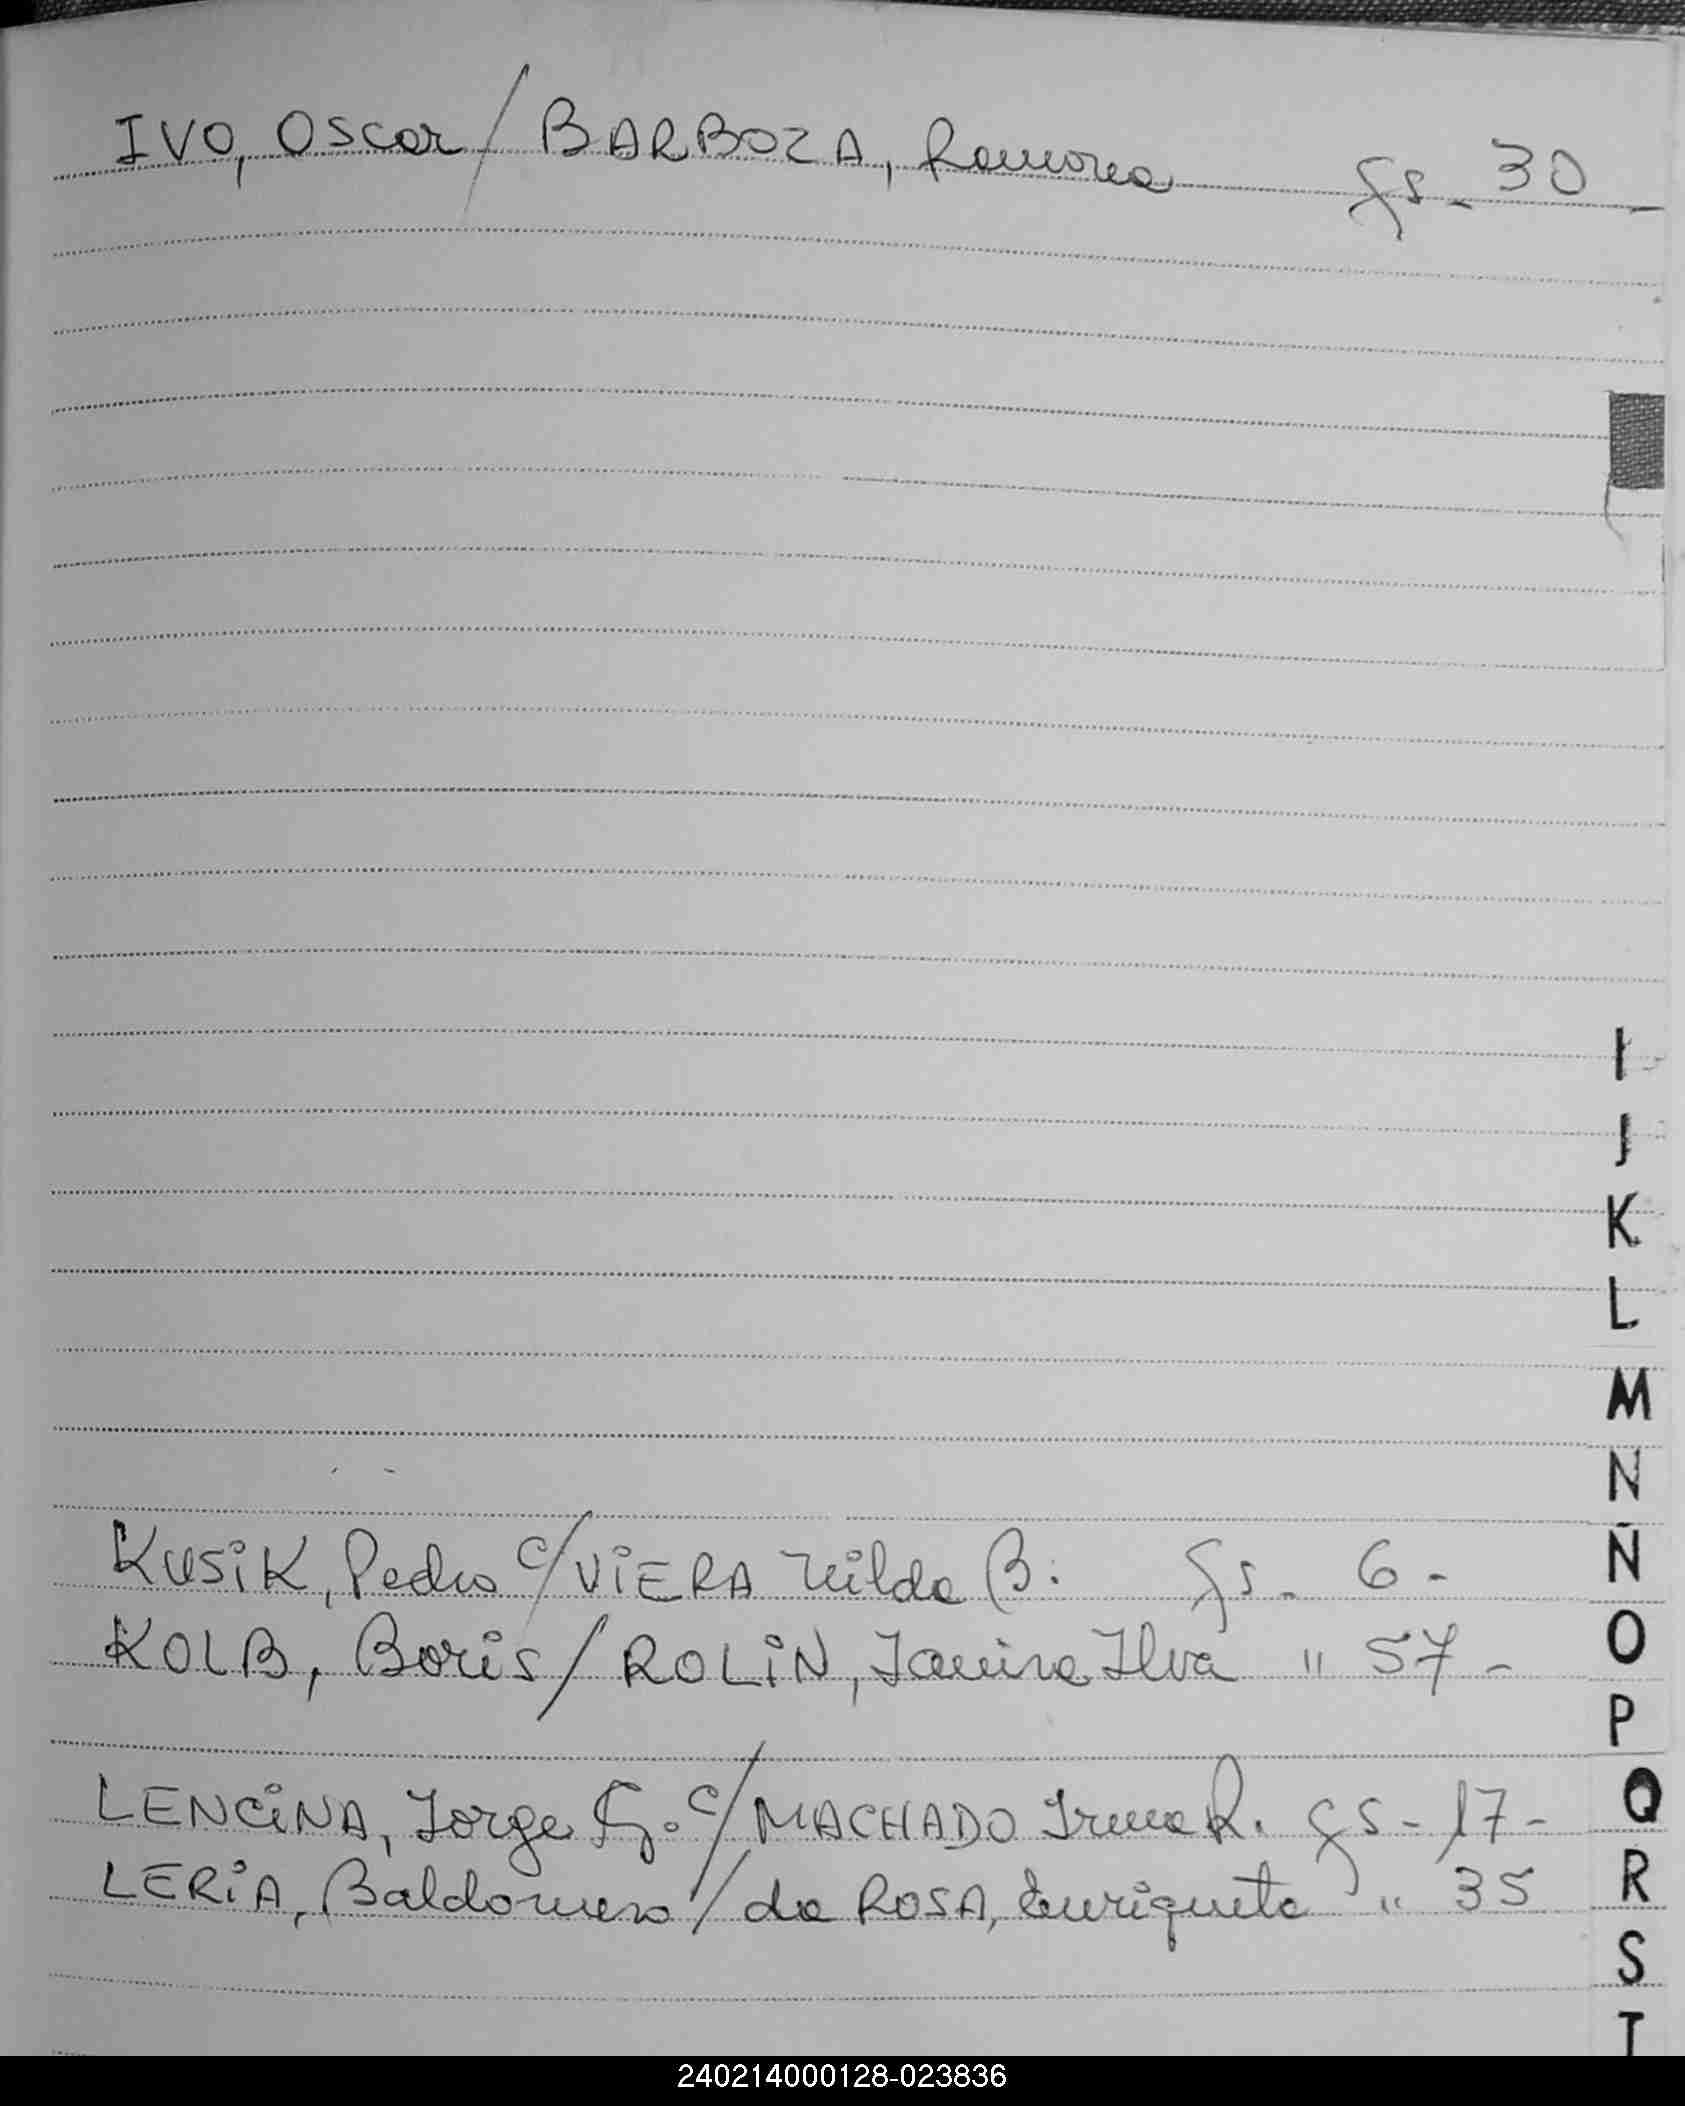 IVO, Oscar / BARBOZA, Ramona fs - 30 -
I
J
K
L
M
N
Ñ
KUSiK, Pedro c/ VIERA Hilda B. fs - 6 -
KOLB, Boris / ROLiN, Janina Ilva " 57 -
O
P
LENCiNA, Jorge G. c/ MACHADO Irma R. fs - 17 -
Q
LERiA, Baldomero / da ROSA, Enriqueta " 35
R
S
T
240214000128-023836